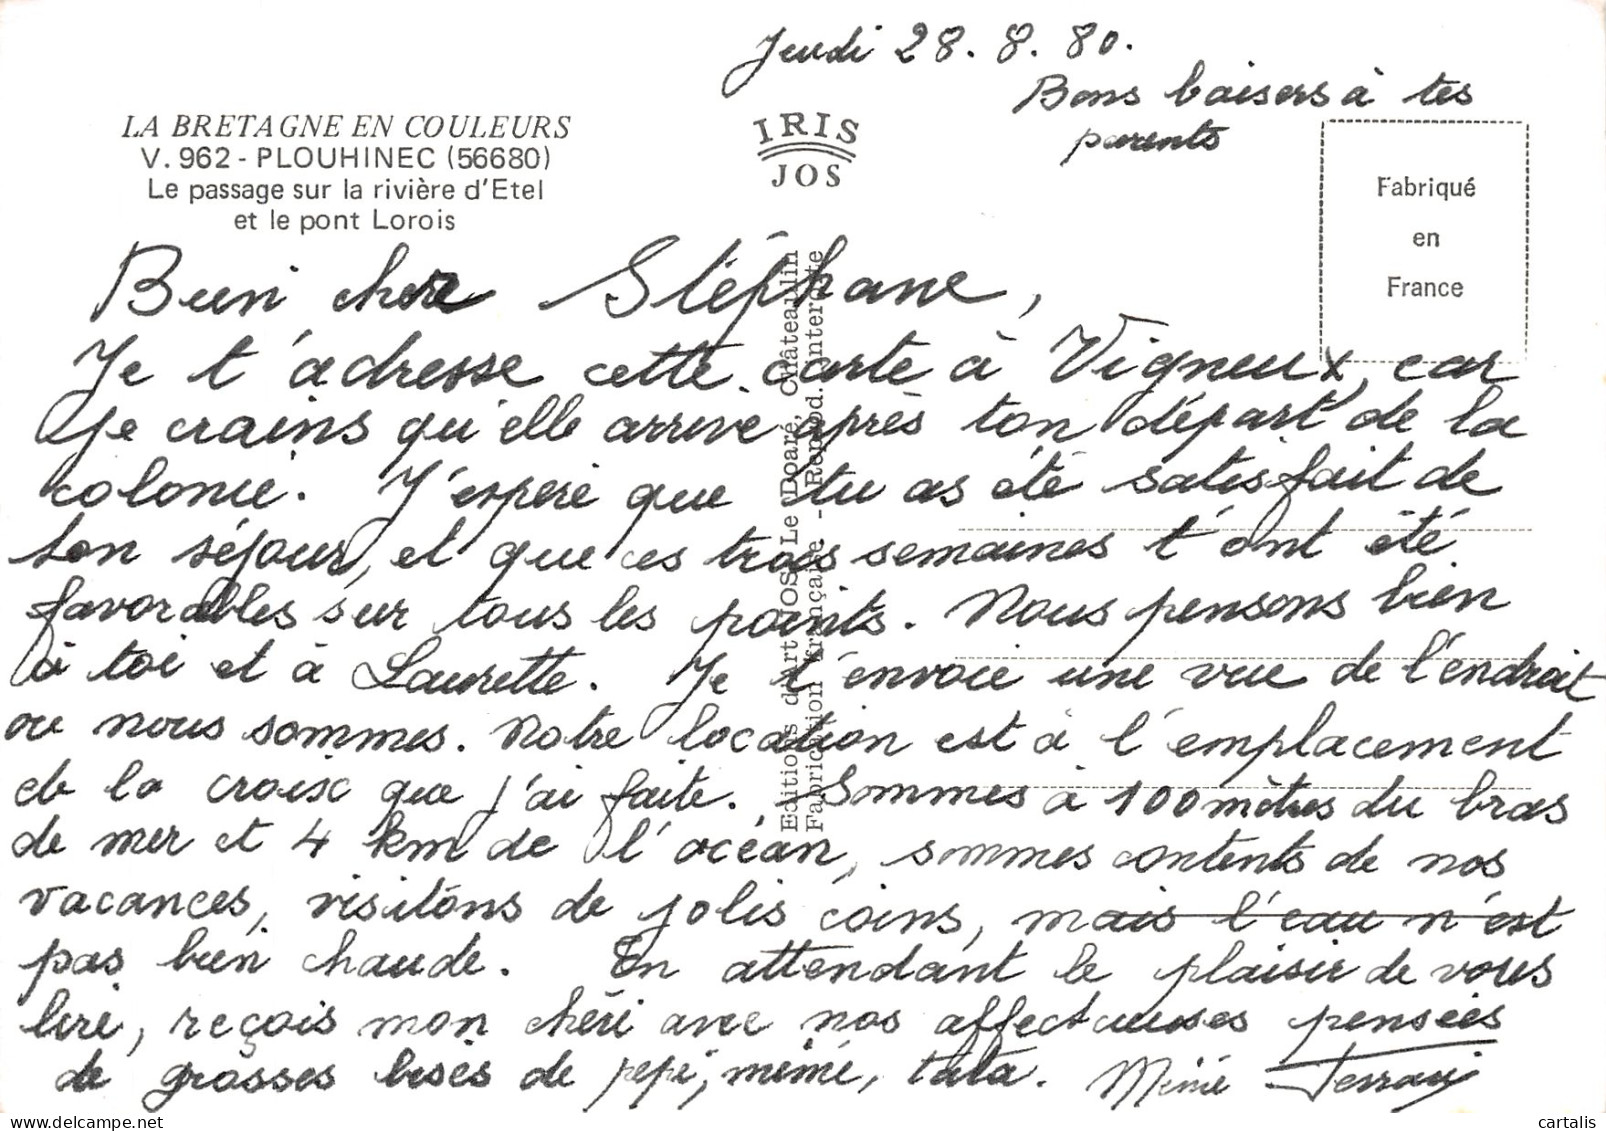 Jeudi 28.8.80.
Bons baisers à tes
parents
LA BRETAGNE EN COULEURS
V. 962 - PLOUHINEC (56680)
Le passage sur la rivière d'Etel
et le pont Lorois
IRIS
JOS
Fabriqué
en
France
Editions d'Art JOS Le Doaré, Châteaulin
Fabrication française - Reprod. interdite
Bien cher Stéphane,
Je t'adresse cette carte à Vigneux, car
je crains qu'elle arrive après ton départ de la
colonie. J'espère que tu as été satisfait de
ton séjour, et que ces trois semaines t'ont été
favorables sur tous les points. Nous pensons bien
à toi et à Laurette. Je t'envoie une vue de l'endroit
ou nous sommes. Notre location est à l'emplacement
de la croix que j'ai faite. Sommes à 100 mètres du bras
de mer et 4 km de l'océan, sommes contents de nos
vacances, visitons de jolis coins, mais l'eau n'est
pas bien chaude. En attendant le plaisir de vous
lire, reçois mon chéri avec nos affectueuses pensées
de grosses bises de pépé, mémé, tata. Mémé
cartalis.com